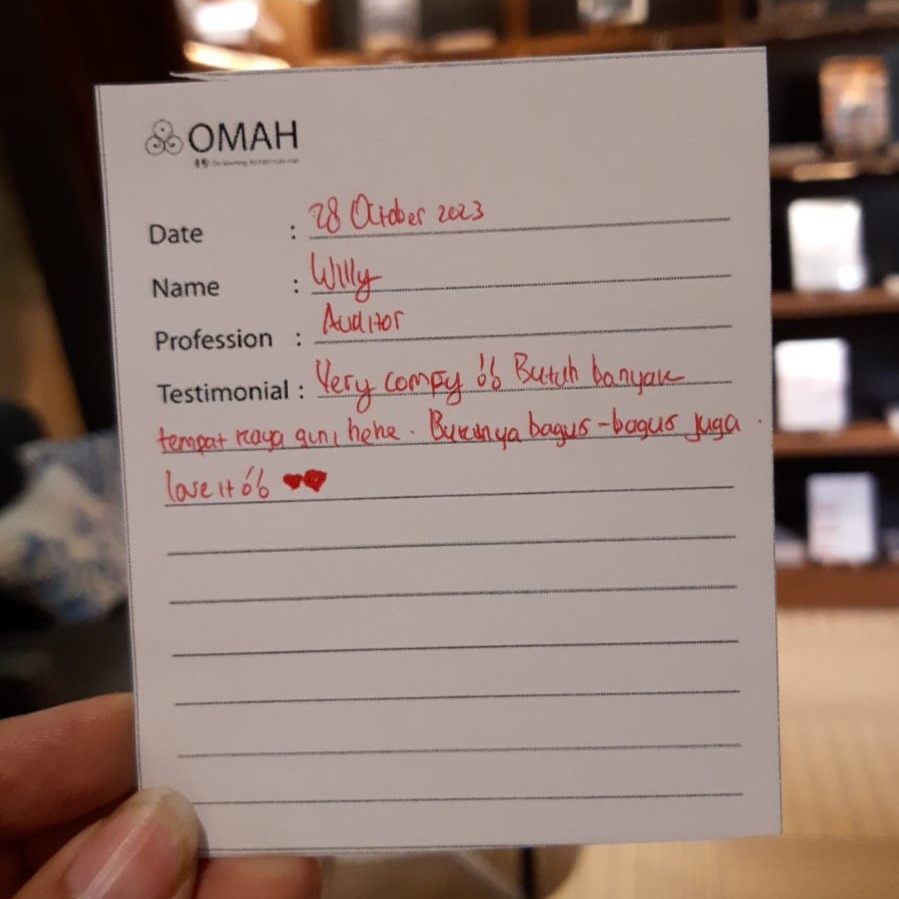 OMAH
Date : 28 October 2023
Name : Willy
Profession : Auditor
Testimonial : Very comfy !! Butuh banyak
tempat kaya gini hehe. Bukunya bagus-bagus juga.
love it !!